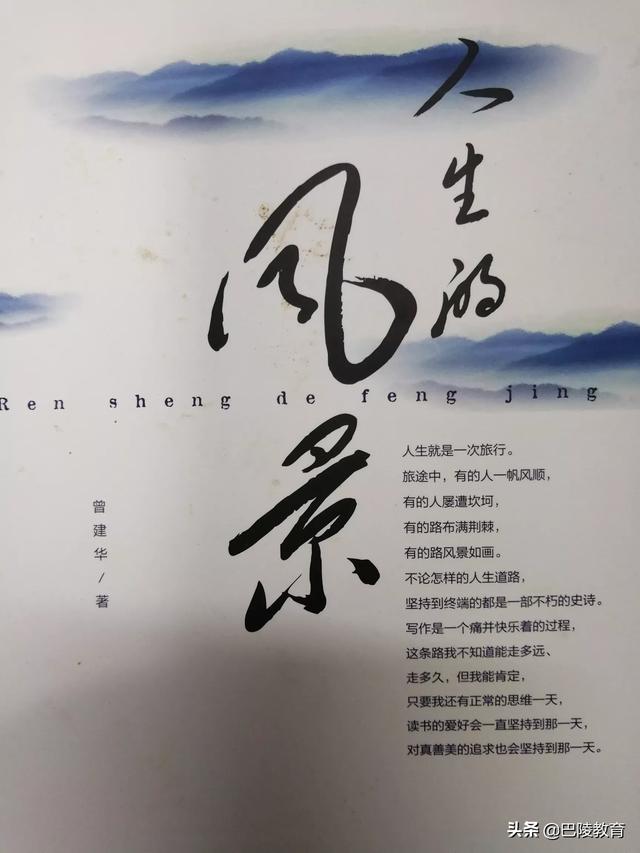 人生的
风景
Ren sheng de feng jing
曾建华/著
人生就是一次旅行。
旅途中，有的人一帆风顺，
有的人屡遭坎坷，
有的路布满荆棘，
有的路风景如画。
不论怎样的人生道路，
坚持到终端的都是一部不朽的史诗。
写作是一个痛并快乐着的过程，
这条路我不知道能走多远、
走多久，但我能肯定，
只要我还有正常的思维一天，
读书的爱好会一直坚持到那一天，
对真善美的追求也会坚持到那一天。
头条 @巴陵教育